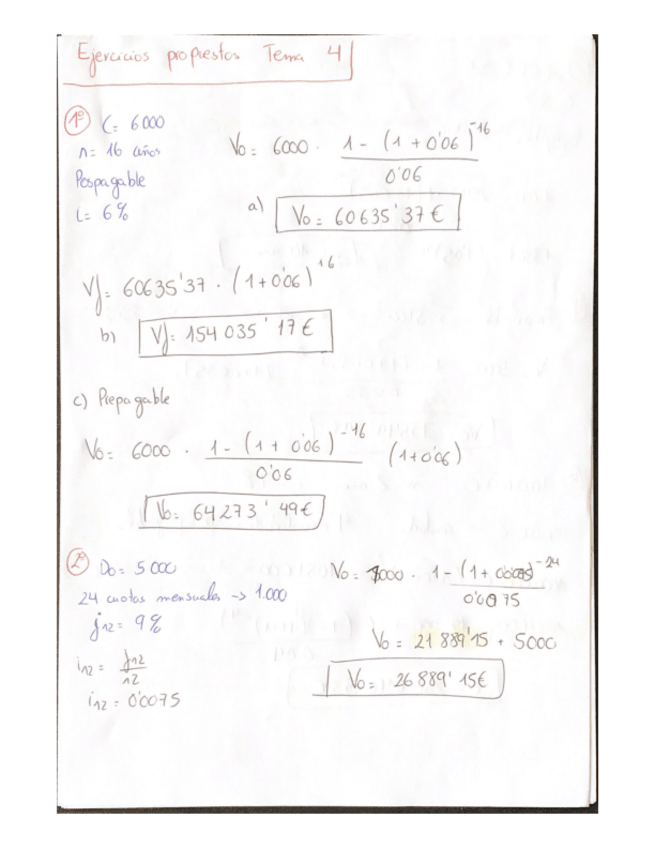 Ejercicios propuestos Tema 4
1º C= 6000
n= 16 años
Pospagable
i= 6%
V0= 6000 · 1 - (1 + 0'06)^-16 / 0'06
a) V0= 60635'37 €
Vf= 60635'37 · (1+0'06)^16
b) Vf= 154035'17 €
c) Prepagable
V0= 6000 · 1 - (1 + 0'06)^-16 / 0'06 (1+0'06)
V0= 64273'49 €
2º D0= 5000
24 cuotas mensuales -> 1.000
j12= 9%
i12= j12/12
i12= 0'0075
V0= 1000 · 1 - (1+0'0075)^-24 / 0'0075
V0= 21889'15 + 5000
V0= 26889'15€